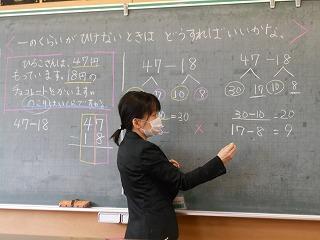 一のくらいがひけないときは どうすればいいかな。
ひろこさんは、47円
もっています。18円の
チョコレートをかいます。
のこりはいくらですか。
47-18
47
18
47-18
10 8
=30
×
47-18
30 17 10 8
30-10=20
17-8=9